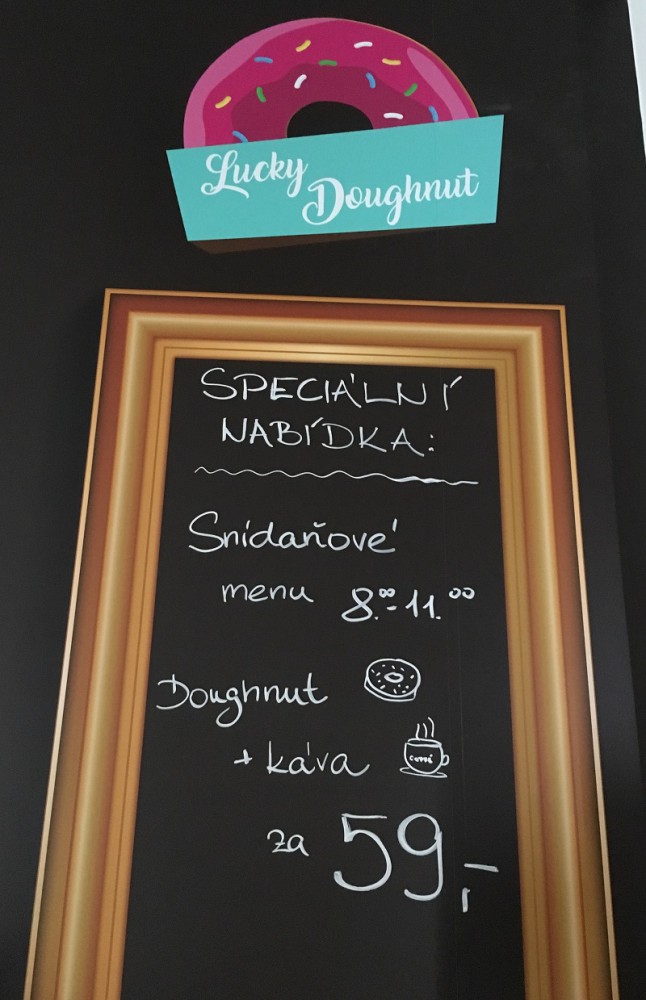 Lucky
Doughnut
SPECIÁLNÍ
NABÍDKA:
Snídaňové
menu 8.⁰⁰-11.⁰⁰
Doughnut
+ káva
za 59,-